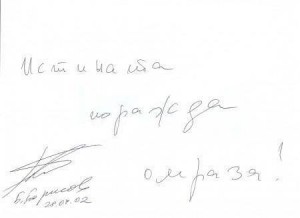 Истината
поражда
омраза!
Б. Борисов
21.07.02